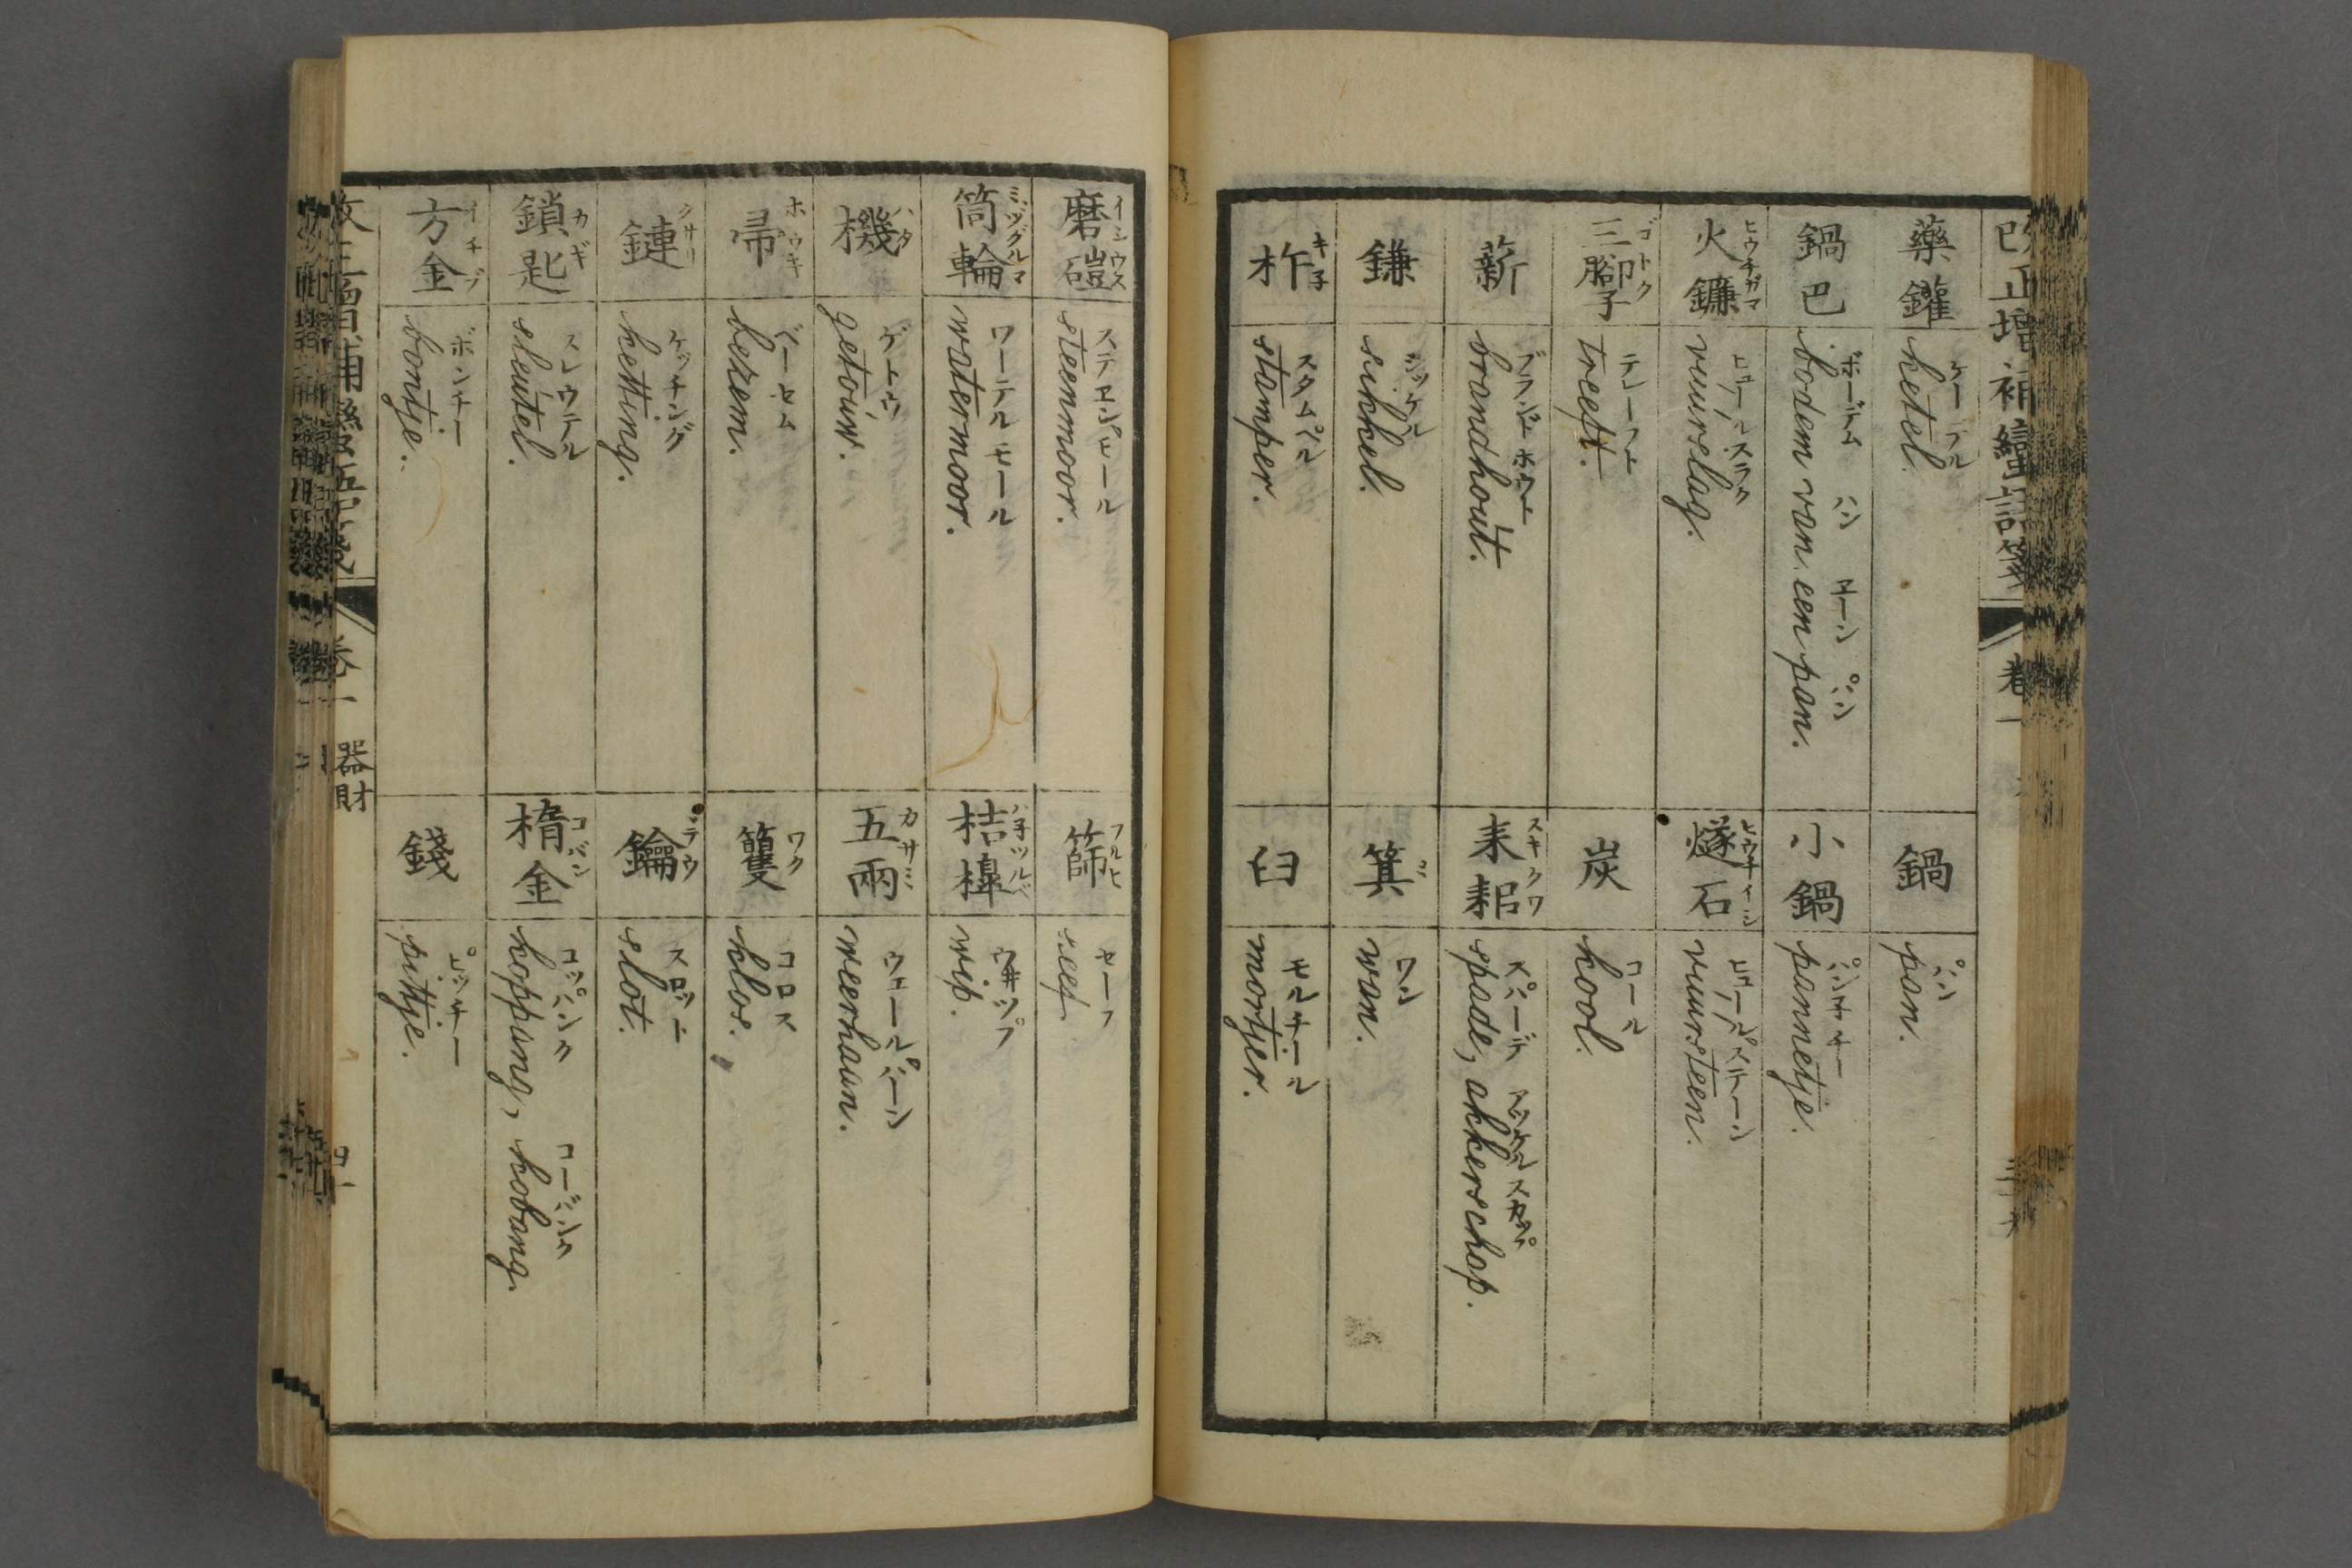 改正増補蠻語箋 卷一
藥鑵 ケーテル ketel.
鍋 パン pan.
鍋巴 ボーデム ハン エーン パン bodem van een pan.
小鍋 pannetje.
火鐮 ヒウチガマ ヒュールスラク vuurslag.
燧石 ヒウチイシ ヒュールステーン vuursteen.
三脚子 ゴトク テレーフト treeft.
炭 コール kool.
薪 ブランドホウト brandhout.
耒耜 スキクワ スパーデ アッケルスカップ spade, akkerschop.
鎌 シッケル sikkel.
箕 ミ ワン wan.
杵 キ子 スタムペル stamper.
臼 モルチール mortjer.
磨磑 イシウス steenmoor.
篩 フルヒ セーフ zeef.
筒輪 ミヅグルマ ワーテルモール watermoor.
桔槹 ハ子ツルベ ウ井ップ wip.
機 ハタ ゲトウ getouw.
五兩 カザミ ウェールハーン weerhaan.
帚 ホウキ ベーセム bezem.
籰 ワク コロス klos.
鏈 クサリ ケッチング ketting.
鑰 スロット slot.
鎖匙 カギ スレウテル sleutel.
楕金 コバン コッパンク コーバンク koppang, kobang.
方金 イチブ ボンチー bontje.
錢 ピッチー pittje.
改正増補蠻語箋 卷一 器財